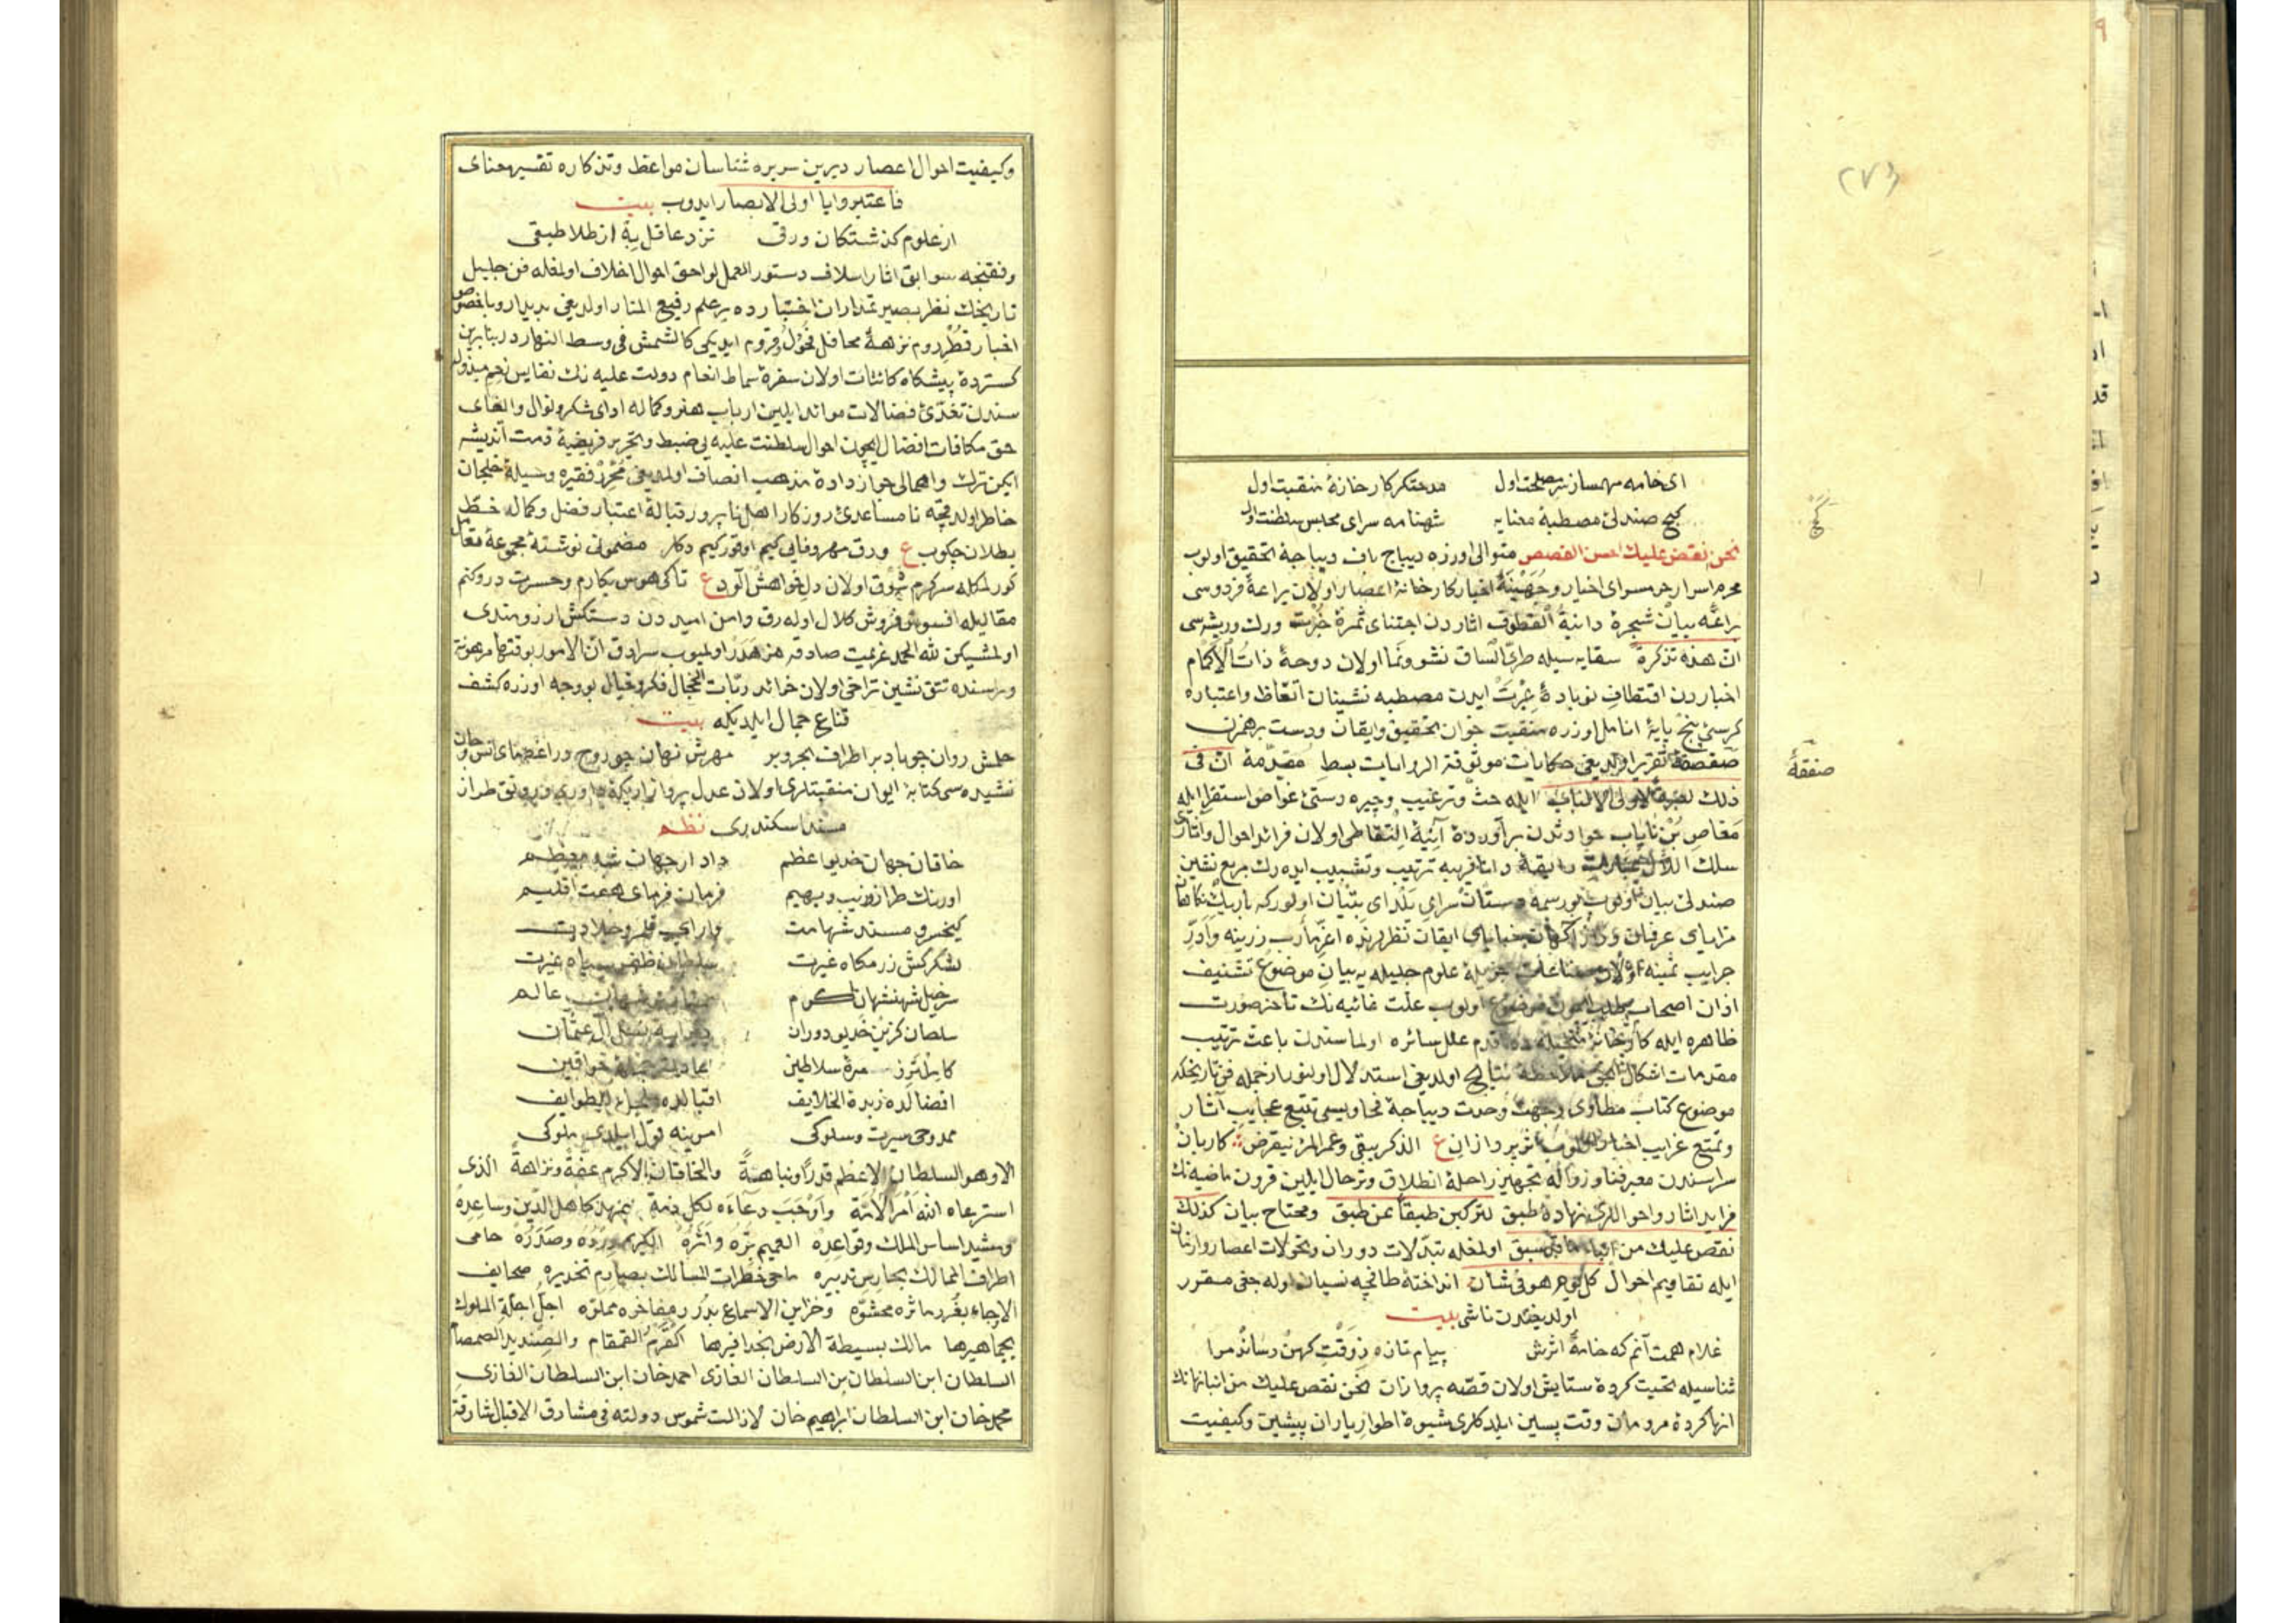 ای خامه مهمساز مصلحت اول مدحتکر کارخانهٔ منقبت اول
کج صندلئ مصطبهٔ معنایه شهنامه سرای مجلس سلطنت اول
نحن نقص علیك احسن القصص متوالی اوزره دیباج باف دیباجهٔ تحقیق اولوب
محرم اسرار اخیار وجهینهٔ اخبار کارخانهٔ اعصار اولان یراعهٔ فردوسی
براعه بیان شجرهٔ دانیة القطوف اثاردن اجتنای ثمرهٔ خبرت ورك وریشه سی
ان هذه تذکرة سقایه سیله طری الساق نشو ونما اولان دوحهٔ ذات الاکمام
اخباردن اقتطاف نوبادهٔ عبرت ایدن مصطبه نشینان اتعاظ واعتباره
کرسئ پنج پایهٔ انامل اوزره منقبت خوان تحقیق وایقان ودست برهمزن
صفقهٔ تقریر اولدیغی حکایات موثوقة الروایات بسط مقدمهٔ ان فی
ذلك لعبرة لاولی الالباب ایله حث وترغیب وچیره دستئ غواص استقرا ایله
مغاص بن نایاب حوادثدن برآوردهٔ آنیهٔ التقاطی اولان فرائد احوال واثاری
سلك اللآل عبارات رایقه ترتیب وتشبیب ایده رك مربع نشین
صندلئ بیان اولوب بو رسمه دستان سرای اولورکه باریك نکاهان
مزایای عرفان خبایای ایقان نظرلرنده اعز مآرب زرینه وادر
جرایب ثمینه اولان علوم جلیله یه بیان موضوع تشنیف
اذان اصحاب اولوب علت غائیه نك تأخر صورت
ظاهره ایله علل سائره اولماسندن باعث ترتیب
مقدمات اشکال نتایج اولدیغی استدلال اولنور ازجمله فن تاریخکه
موضوع کتاب مطاوی وجهت وحدت دیباجهٔ فحاویسی تتبع عجایب آثار
وتمتع غرایب اخبار الذکر یبقی وعمر المرء ینقرض کاربان
سراسندن معبر فنا وزواله تجهیز راحلهٔ انطلاق وترحال ایلین قرون ماضیه نك
فراید اثار واحواللری نهادهٔ طبق لترکبن طبقا عن طبق ومفتاح بیان کذلك
نقص علیك من انباء ما قد سبق اولمغله تبدلات دوران وتحولات اعصار وازمان
ایله تقاویم احوال کل یوم هو فی شان انداختهٔ طاقچه نسیان اوله جغی مقرر
اولدیغندن ناشی بیت
غلام همت آنم که خامهٔ اثرش پیام تازه ز وقت کهن رساند مرا
ثناسیله تحیت کردهٔ ستایش اولان قصه پردازان نحن نقص علیك من انبائها نك
انها کردهٔ مردمان وقت پسین ایلدکلری شیوهٔ اطوار یاران پیشین وکیفیت
صفقهٔ
وکیفیت احوال اعصار دیرین سریره شناسان مواعظ وتذکاره تفسیر معنای
فاعتبروا یا اولی الابصار ایدوب بیت
از علوم کذشتکان ورقی نزد عاقل به از طلا طبقی
وفقنجه سوابق اثار اسلاف دستور العمل لواحق احوال اخلاف اولمغله فن جلیل
تاریخك نظر بصیرتمداران اختبارده بر علم رفیع المنار اولدیغی بدیدار وبا خصوص
اخبار قطر روم نزهة محافل فحول وقروم ایدیکی کالشمش فی وسط النهاردر بنابرین
کستردهٔ پیشکاه کائنات اولان سفرهٔ سماط انعام دولت علیه نك نفایس نعم مبذوله
سندن تغذئ فضالات موائد ایلین ارباب هنر وکماله ادای شکر ونوال والغای
حق مکافات افضال ایچون احوال سلطنت علیه یی ضبط وتحریر فریضهٔ ذمت آندیشه
ایکن ترك واهمالی جواز دادهٔ مذهب انصاف اولمدیغی محرر فقیره وسیلهٔ خلجان
خاطر اولدقجه نامساعدئ روزکار اهل ناپرور قبالهٔ اعتبار فضل وکماله خط
بطلان چکوب ع ورق مهر ووفایی کیم اوقور کیم دکلر مضمونی نوشتهٔ مجموعهٔ تعامل
کورلمکله سرکرم شوق اولان دل خواهش آلود ع تاکی هوس بکارم وحسرت درو کنم
مقالیله افسوس فروش کلال اوله رق دامن امیددن دستکش ارزومندی
اولمشیکن لله الحمد عزیمت صادقه هز هدر اولمیوب سرادق ان الامور بوقتها مرهونة
وراسنده تتق نشین تراخی اولان خرائد ربات الحجال فکر وخیال بو وجه اوزره کشف
قناع جمال ایلدیکه بیت
حلمش روان چو باد بر اطراف بحر وبر مهرش نهان چو روح در اعضای انس وجان
نشیده سی کتابهٔ ایوان منقبتلری اولان عدل پرداز اریکهٔ داوری ورونق طراز
مسند اسکندری نظم
خاقان جهان خدیو اعظم دادار جهان شه معظم
اورنك طراز وزیب دیهیم فرمان فرمای هفت اقلیم
کیخسرو مسند شهامت دارای قلمرو جلادت
لشکرکش رزمکاه غیرت سلطان ظفر سپاه غیرت
سرخیل شهنشهان اکرم عالم
سلطان کزین خدیو دوران آل عثمان
زمرهٔ سلاطین خواقین
افضالده زبدة الخلایف اقبالده طوایف
ممدوحی سیرت وسلوکی امرینه قول ایلدی ملوکی
الا وهو السلطان الاعظم قدرا ونباهة والخاقان الاکرم عفة ونزاهة الذی
استرعاه الله امر الامة واوجب دعاءه لکل ذمة کاهل الدین وساعده
ومشید اساس الملك وقواعده العمیم بره واثره الکریم ورده وصدره حامی
اطراف الممالك بحارس تدبیره ماحی خطرات المسالك بصارم تحذیره صحایف
الارجاء بغرر ماثره محشوه وخزاین الاسماع بدرر مفاخره مملوه اجل اجلة الملوك
بجماهیرها مالك بسیطة الارض بحذافیرها القرم القمقام والصندید الصمصام
السلطان ابن السلطان بن السلطان الغازی احمد خان ابن السلطان الغازی
محمد خان ابن السلطان ابراهیم خان لازالت شموس دولته فی مشارق الاقبال شارقة